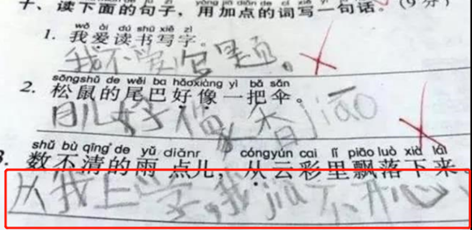 十、读下面的句子，用加点的词写一句话。(9分)
wǒ ài dú shū xiě zì
1. 我爱读书写字
我不爱写题。
sōngshǔ de wěi ba hǎoxiàng yì bǎ sǎn
2. 松鼠的尾巴好像一把伞。
月儿好像香jiāo
shǔ bù qīng de yǔ diǎnr cóng yún cai lǐ piāo luò xià lái
3. 数不清的雨点儿，从云彩里飘落下来
从我上学，我jiù不开心